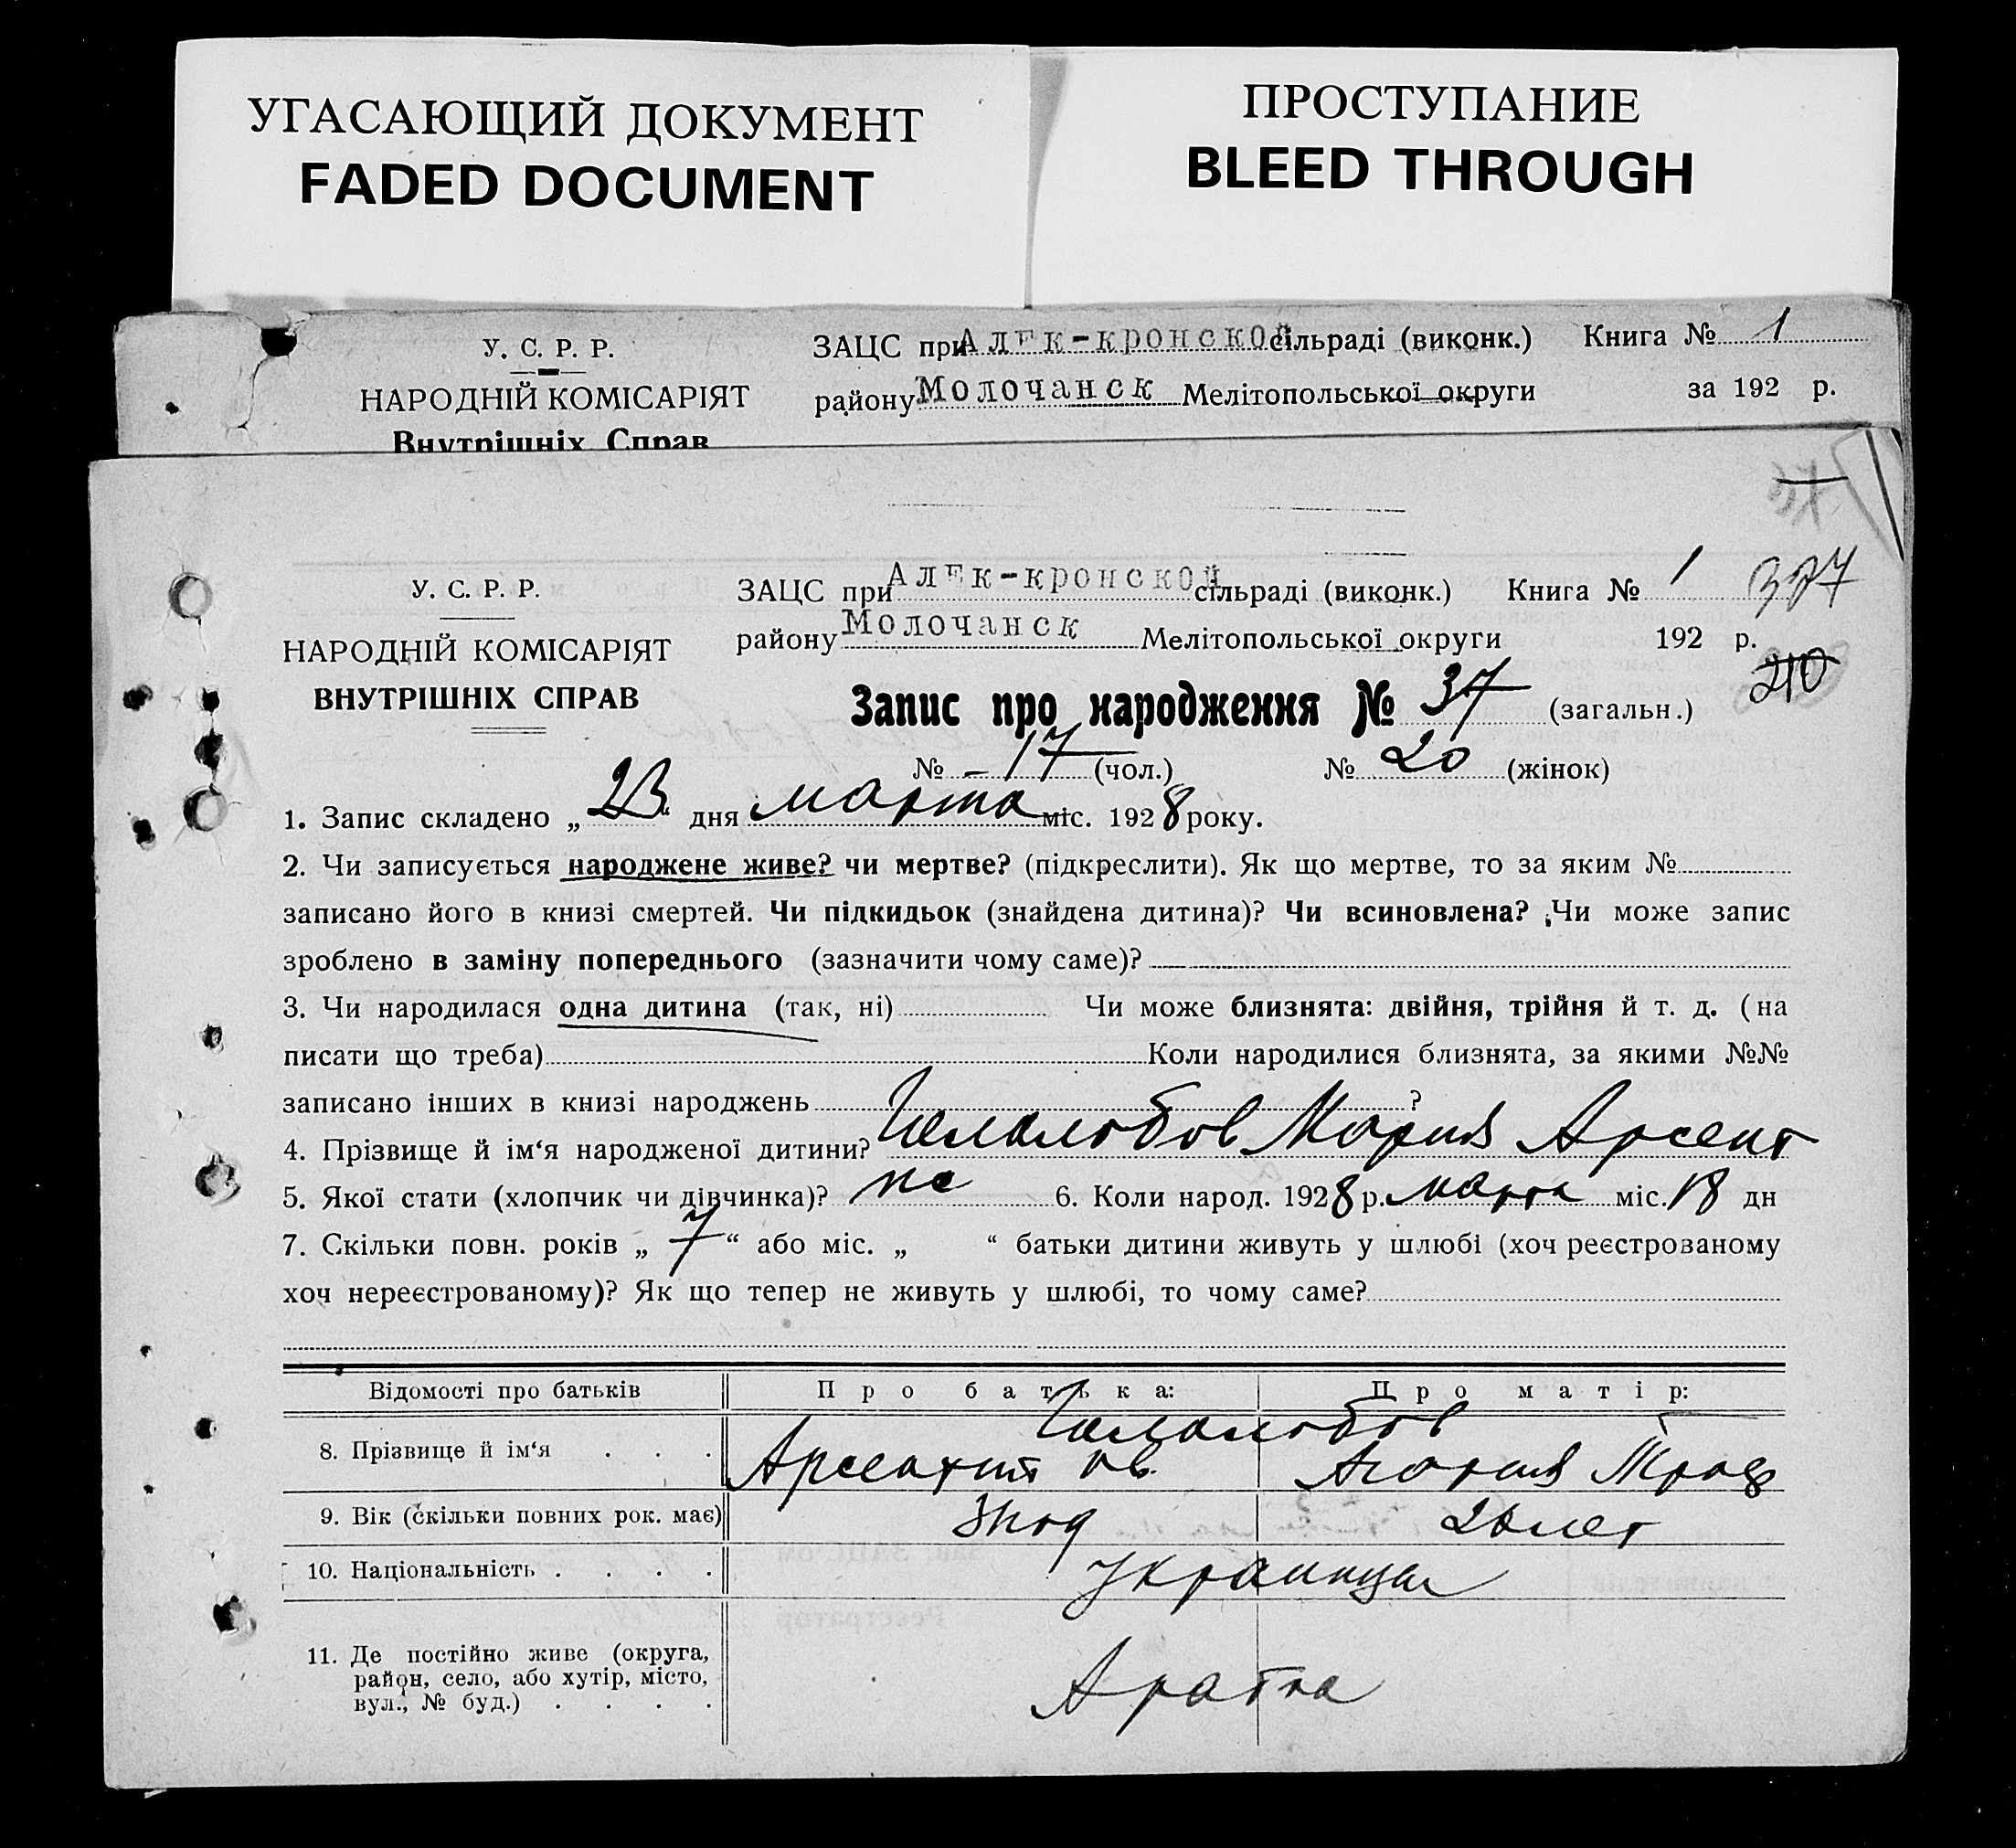 УГАСАЮЩИЙ ДОКУМЕНТ
FADED DOCUMENT
ПРОСТУПАНИЕ
BLEED THROUGH
У. С. Р. Р.
НАРОДНІЙ КОМІСАРІЯТ
Внутрішніх Справ
ЗАЦС при Алек-кронской сільраді (виконк.) Книга № 1
району Молочанск Мелітопольської округи за 192 р.
У. С. Р. Р.
НАРОДНІЙ КОМІСАРІЯТ
ВНУТРІШНІХ СПРАВ
ЗАЦС при Алек-кронской сільраді (виконк.) Книга № 1 377
району Молочанск Мелітопольської округи 192 р.
210
Запис про народження № 37 (загальн.)
№ – 17 (чол.) № 20 (жінок)
1. Запис складено „ 23 “ дня марта міс. 1928 року.
2. Чи записується народжене живе? чи мертве? (підкреслити). Як що мертве, то за яким №
записано його в книзі смертей. Чи підкидьок (знайдена дитина)? Чи всиновлена? Чи може запис
зроблено в заміну попереднього (зазначити чому саме)?
3. Чи народилася одна дитина (так, ні) Чи може близнята: двійня, трійня й т. д. (на
писати що треба) Коли народилися близнята, за якими №№
записано інших в книзі народжень ?
4. Прізвище й ім‘я народженої дитини? Мария Арсент
5. Якої стати (хлопчик чи дівчинка)? 6. Коли народ. 1928 р. марта міс. 18 дн
7. Скільки повн. років „ 7 “ або міс. „ “ батьки дитини живуть у шлюбі (хоч реєстрованому
хоч нереєстрованому)? Як що тепер не живуть у шлюбі, то чому саме?
Відомості про батьків Про батька: Про матір:
8. Прізвище й ім‘я . . .
Арсентий Ив.
9. Вік (скільки повних рок. має) лет
10. Національність . . . . украинцы
11. Де постійно живе (округа,
район, село, або хутір, місто,
вул., № буд.) . . . .